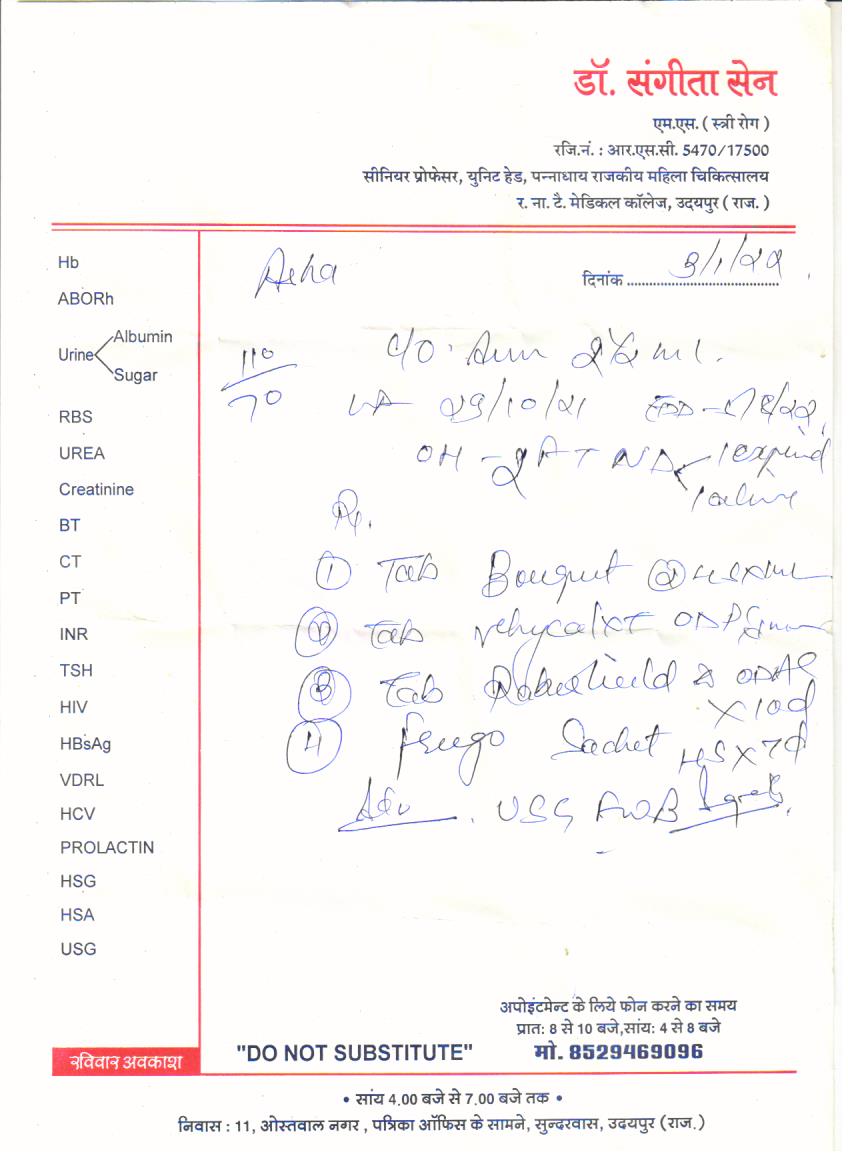 डॉ. संगीता सेन
एम.एस. ( स्त्री रोग )
रजि.नं. : आर.एस.सी. 5470/17500
सीनियर प्रोफेसर, युनिट हेड, पन्नाधाय राजकीय महिला चिकित्सालय
र. ना. टै. मेडिकल कॉलेज, उदयपुर ( राज. )
Hb
ABORh
Urine Albumin
Sugar
RBS
UREA
Creatinine
BT
CT
PT
INR
TSH
HIV
HBsAg
VDRL
HCV
PROLACTIN
HSG
HSA
USG
Asha
दिनांक 3/1/22
110/70
C/O
29/10/21 EDD
OH - 2 FTND 1 expired
1 alive
Rx.
① Tab
② Tab
③ Tab OD x 10d
④ Sachet HS x 7d
Adv. USG FWB
अपोइंटमेन्ट के लिये फोन करने का समय
प्रात: 8 से 10 बजे,सांय: 4 से 8 बजे
मो. 8529469096
रविवार अवकाश
"DO NOT SUBSTITUTE"
• सांय 4.00 बजे से 7.00 बजे तक •
निवास : 11, ओस्तवाल नगर , पत्रिका ऑफिस के सामने, सुन्दरवास, उदयपुर (राज.)